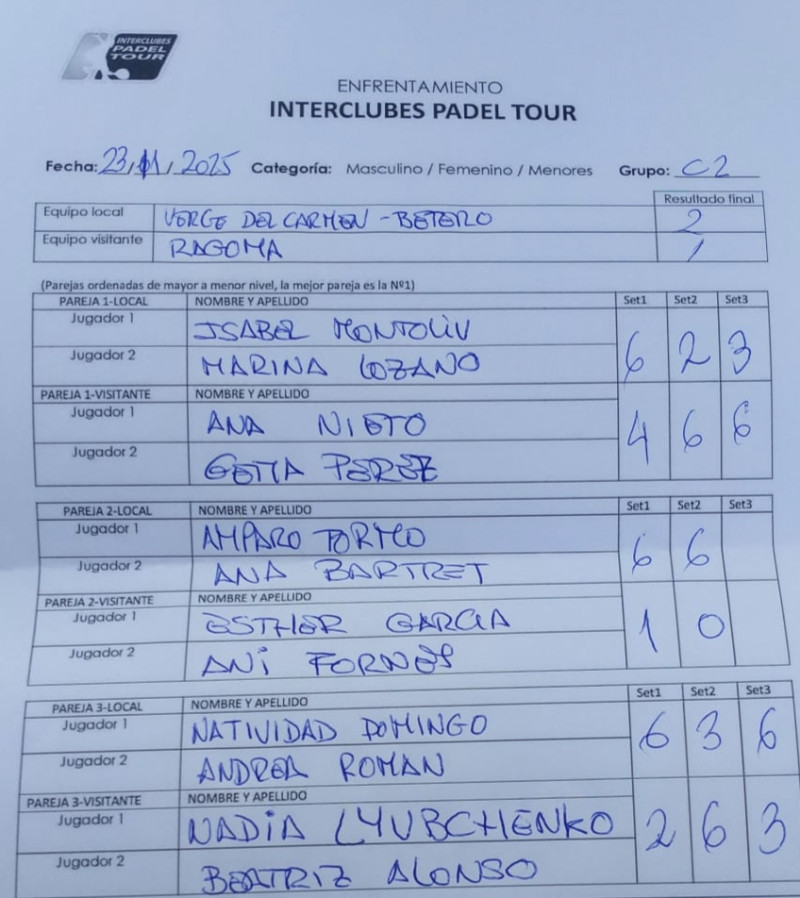 INTERCLUBES
PADEL
TOUR
ENFRENTAMIENTO
INTERCLUBES PADEL TOUR
Fecha: 23/11/2025 Categoría: Masculino / Femenino / Menores Grupo: C2
Resultado final
Equipo local VERGE DEL CARMEN - BETERO 2
Equipo visitante RAGOMA 1
(Parejas ordenadas de mayor a menor nivel, la mejor pareja es la Nº1)
PAREJA 1-LOCAL NOMBRE Y APELLIDO Set1 Set2 Set3
Jugador 1 ISABEL MONTOLIV
Jugador 2 MARINA LOZANO 6 2 3
PAREJA 1-VISITANTE NOMBRE Y APELLIDO
Jugador 1 ANA NIETO 4 6 6
Jugador 2 GEMA PEREZ
PAREJA 2-LOCAL NOMBRE Y APELLIDO Set1 Set2 Set3
Jugador 1 AMPARO TORMO 6 6
Jugador 2 ANA BARTRET
PAREJA 2-VISITANTE NOMBRE Y APELLIDO
Jugador 1 ESTHER GARCIA 1 0
Jugador 2 ANI FORNÉS
PAREJA 3-LOCAL NOMBRE Y APELLIDO Set1 Set2 Set3
Jugador 1 NATIVIDAD DOMINGO 6 3 6
Jugador 2 ANDREA ROMAN
PAREJA 3-VISITANTE NOMBRE Y APELLIDO
Jugador 1 NADIA LYUBCHENKO 2 6 3
Jugador 2 BEATRIZ ALONSO